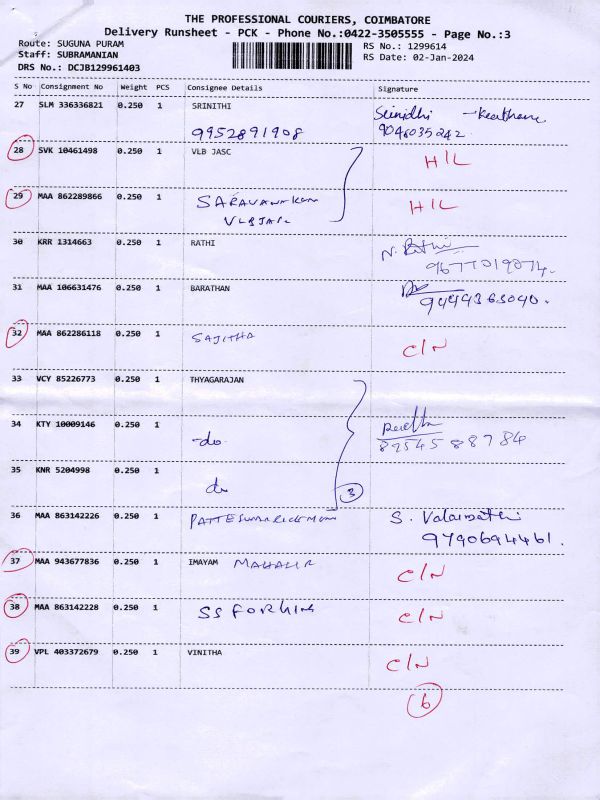 THE PROFESSIONAL COURIERS, COIMBATORE
Delivery Runsheet - PCK - Phone No.:0422-3505555 - Page No.:3
Route: SUGUNA PURAM
Staff: SUBRAMANIAN
DRS No.: DCJB129961403
RS No.: 1299614
RS Date: 02-Jan-2024
S No Consignment No Weight PCS Consignee Details Signature
27 SLM 336336821 0.250 1 SRINITHI Srinidhi
9952891908 9046035242
28 SVK 10461498 0.250 1 VLB JASC H/L
29 MAA 862289866 0.250 1 SARAVANAKUM H/L
VLBJASC
30 KRR 1314663 0.250 1 RATHI N. Rathi
9677019074.
31 MAA 106631476 0.250 1 BARATHAN
9444363040.
32 MAA 862286118 0.250 1 SAJITHA C/N
33 VCY 85226773 0.250 1 THYAGARAJAN
34 KTY 10009146 0.250 1 -do.
8954588784
35 KNR 5204998 0.250 1 do
3
36 MAA 863142226 0.250 1 S. Valarmathi
9790694461.
37 MAA 943677836 0.250 1 IMAYAM MAHAHIR C/N
38 MAA 863142228 0.250 1 SS FORGING C/N
39 VPL 403372679 0.250 1 VINITHA C/N
6